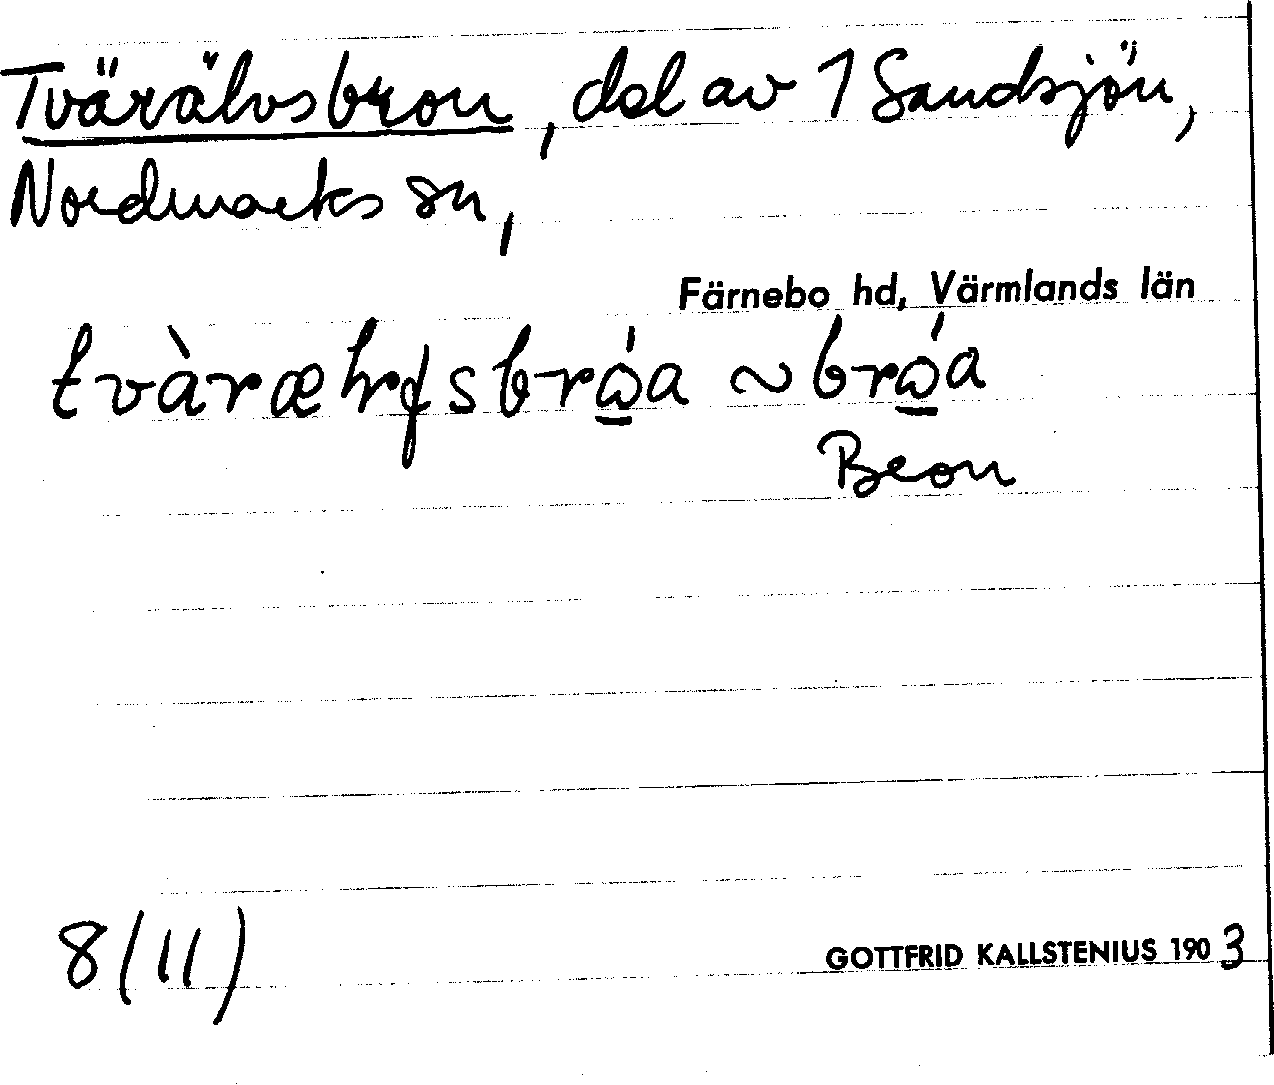 Tvärälvsbron, del av 1 Sandsjön,
Nordmarks sn,
Färnebo hd, Värmlands län
Bron
8(11)
GOTTFRID KALLSTENIUS 1903